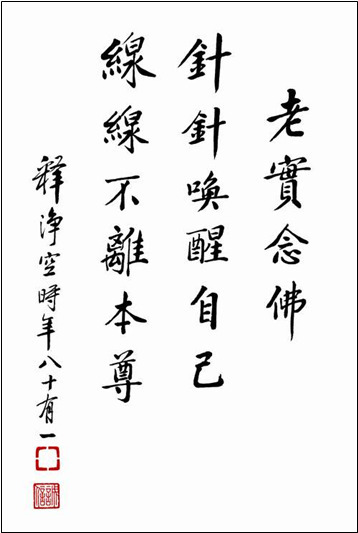 老實念佛
針針喚醒自己
線線不離本尊
释淨空時年八十有一